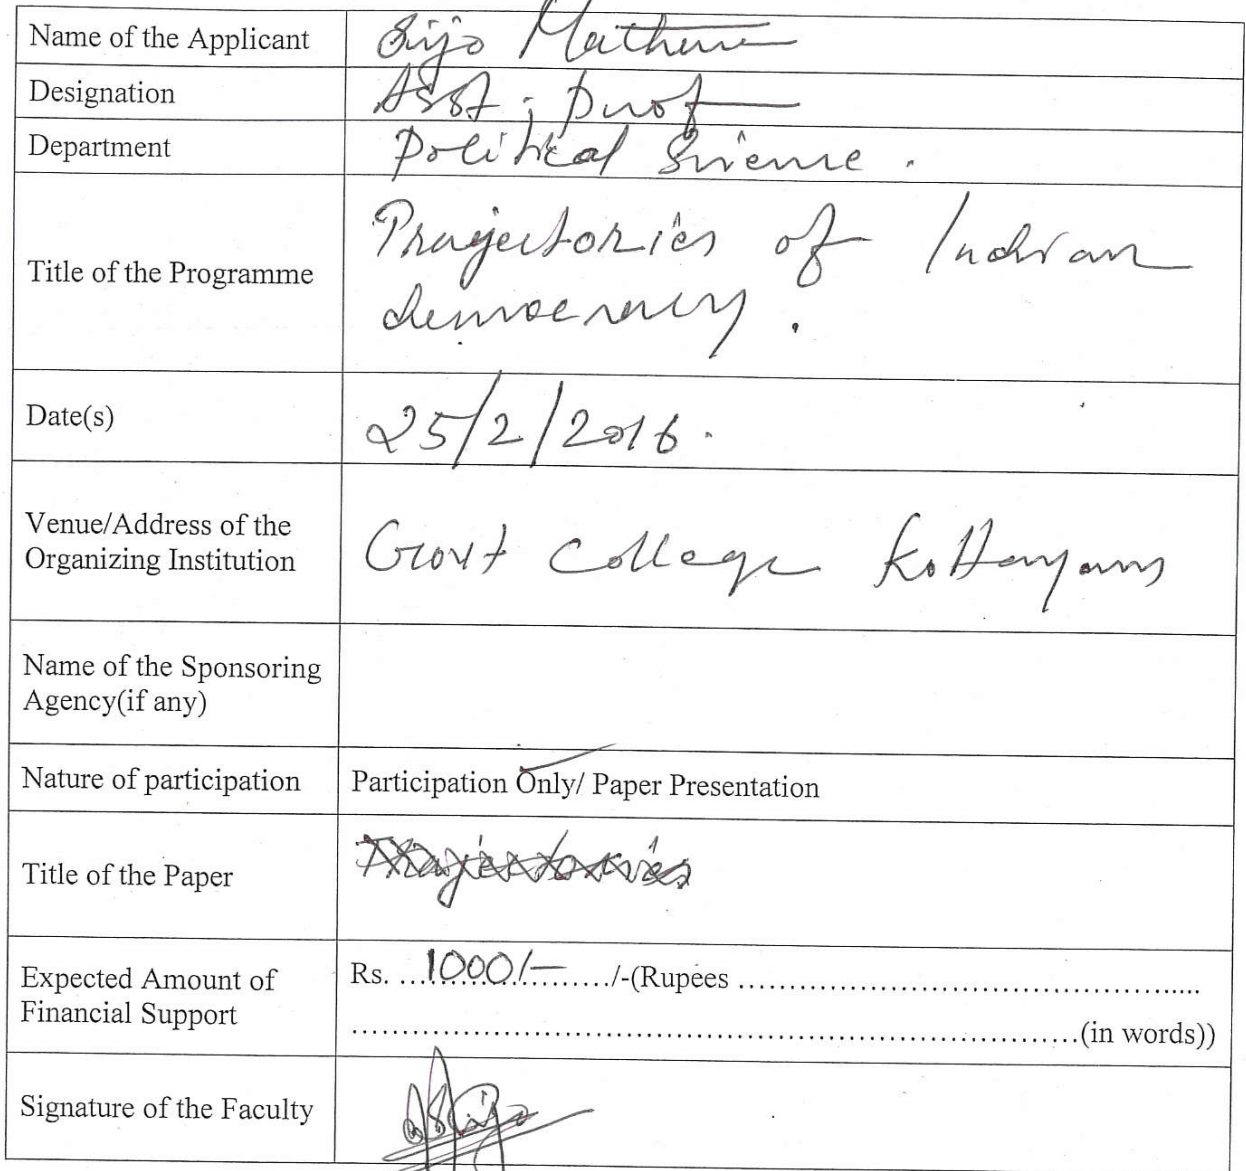 Name of the Applicant Sijo Mathew
Designation Asst. Prof
Department Political Science.
Title of the Programme Trajectories of Indian
democracy.
Date(s) 25/2/2016.
Venue/Address of the
Organizing Institution Govt College Kottayam
Name of the Sponsoring
Agency(if any)
Nature of participation Participation Only/ Paper Presentation
Title of the Paper Trajectories
Expected Amount of
Financial Support
Rs. ...1000/-........./-(Rupees ...............................................
........................................................................(in words))
Signature of the Faculty